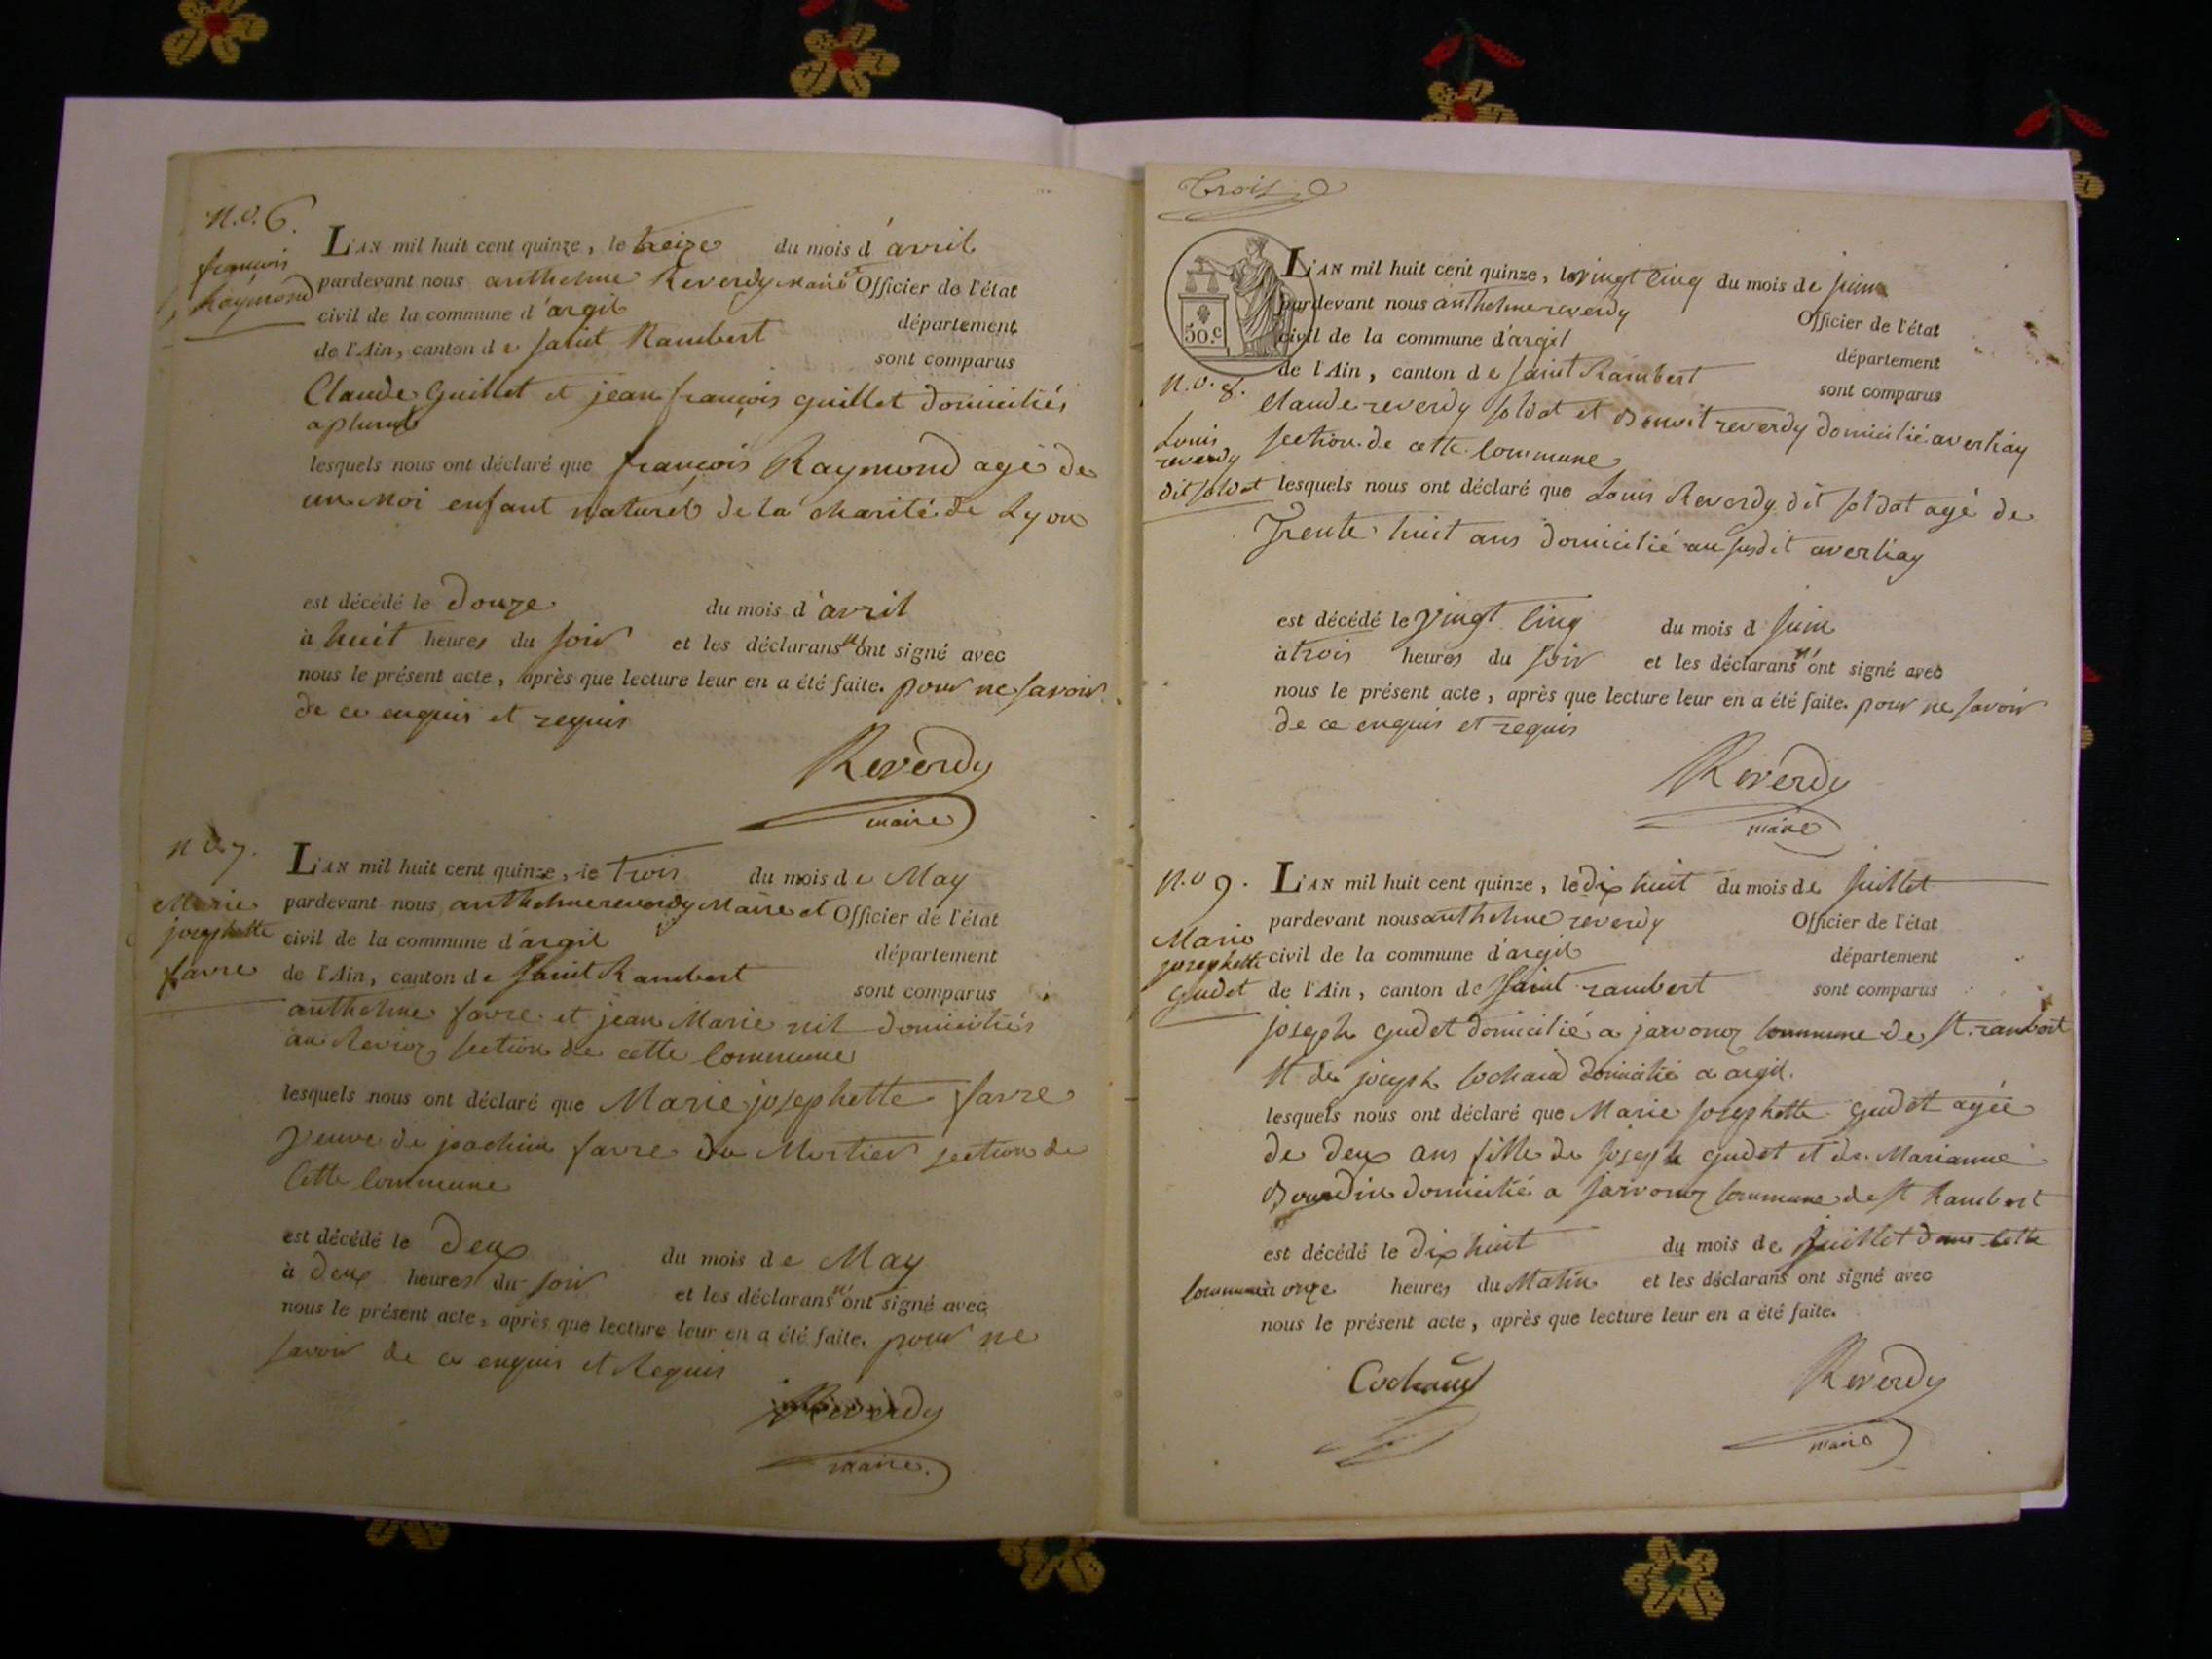 N.o. 6.
françois
Raymond
L'AN mil huit cent quinze, le treize du mois d'avril
pardevant nous anthelme Reverdy maire Officier de l'état
civil de la commune d'argit département
de l'Ain, canton de saint Rambert sont comparus
Claude Guillet et jean françois guillet domiciliés
lesquels nous ont déclaré que françois Raymond agé de
un moi enfant naturel de la charité de Lyon
est décédé le douze du mois d'avril
à huit heures du soir et les déclarans n'ont signé avec
nous le présent acte, après que lecture leur en a été faite. pour ne savoir
de ce enquis et requis
Reverdy
maire
n.o 7.
Marie
josephette
favre
L'AN mil huit cent quinze, le trois du mois de May
pardevant nous anthelme reverdy Maire et Officier de l'état
civil de la commune d'argit département
de l'Ain, canton de saint Rambert sont comparus
anthelme favre et jean Marie nit domiciliés
au section de cette commune
lesquels nous ont déclaré que Marie josephette favre
veuve de joachim favre du Mortier section de
cette commune
est décédé le deux du mois de May
à deux heures du soir et les déclarans n'ont signé avec
nous le présent acte, après que lecture leur en a été faite. pour ne
savoir de ce enquis et Requis
Reverdy
maire.
Trois
50.c
N.o. 8.
Louis
reverdy
dit soldat
L'AN mil huit cent quinze, le vingt cinq du mois de juin
pardevant nous anthelme reverdy Officier de l'état
civil de la commune d'argit département
de l'Ain, canton de saint Rambert sont comparus
Claude reverdy soldat et Benoit reverdy domicilié averliay
section de cette commune
lesquels nous ont déclaré que Louis Reverdy dit soldat agé de
Trente huit ans domicilié au susdit averliay
est décédé le vingt cinq du mois d juin
à trois heures du soir et les déclarans n'ont signé avec
nous le présent acte, après que lecture leur en a été faite. pour ne savoir
de ce enquis et requis
Reverdy
maire
N.o 9.
Marie
josephette
gudet
L'AN mil huit cent quinze, le dix huit du mois de juillet
pardevant nous anthelme reverdy Officier de l'état
civil de la commune d'argit département
de l'Ain, canton de saint rambert sont comparus
joseph gudet domicilié a jarvonoz commune de st. rambert
et de joseph Cochard domicilié a argit.
lesquels nous ont déclaré que Marie josephette gudet agée
de deux ans fille de joseph gudet et de Marianne
Bourdin domicilié a jarvonoz commune de st Rambert
est décédé le dix huit du mois de juillet dans cette
commune à onze heures du Matin et les déclarans ont signé avec
nous le présent acte, après que lecture leur en a été faite.
Cochard Reverdy
maire